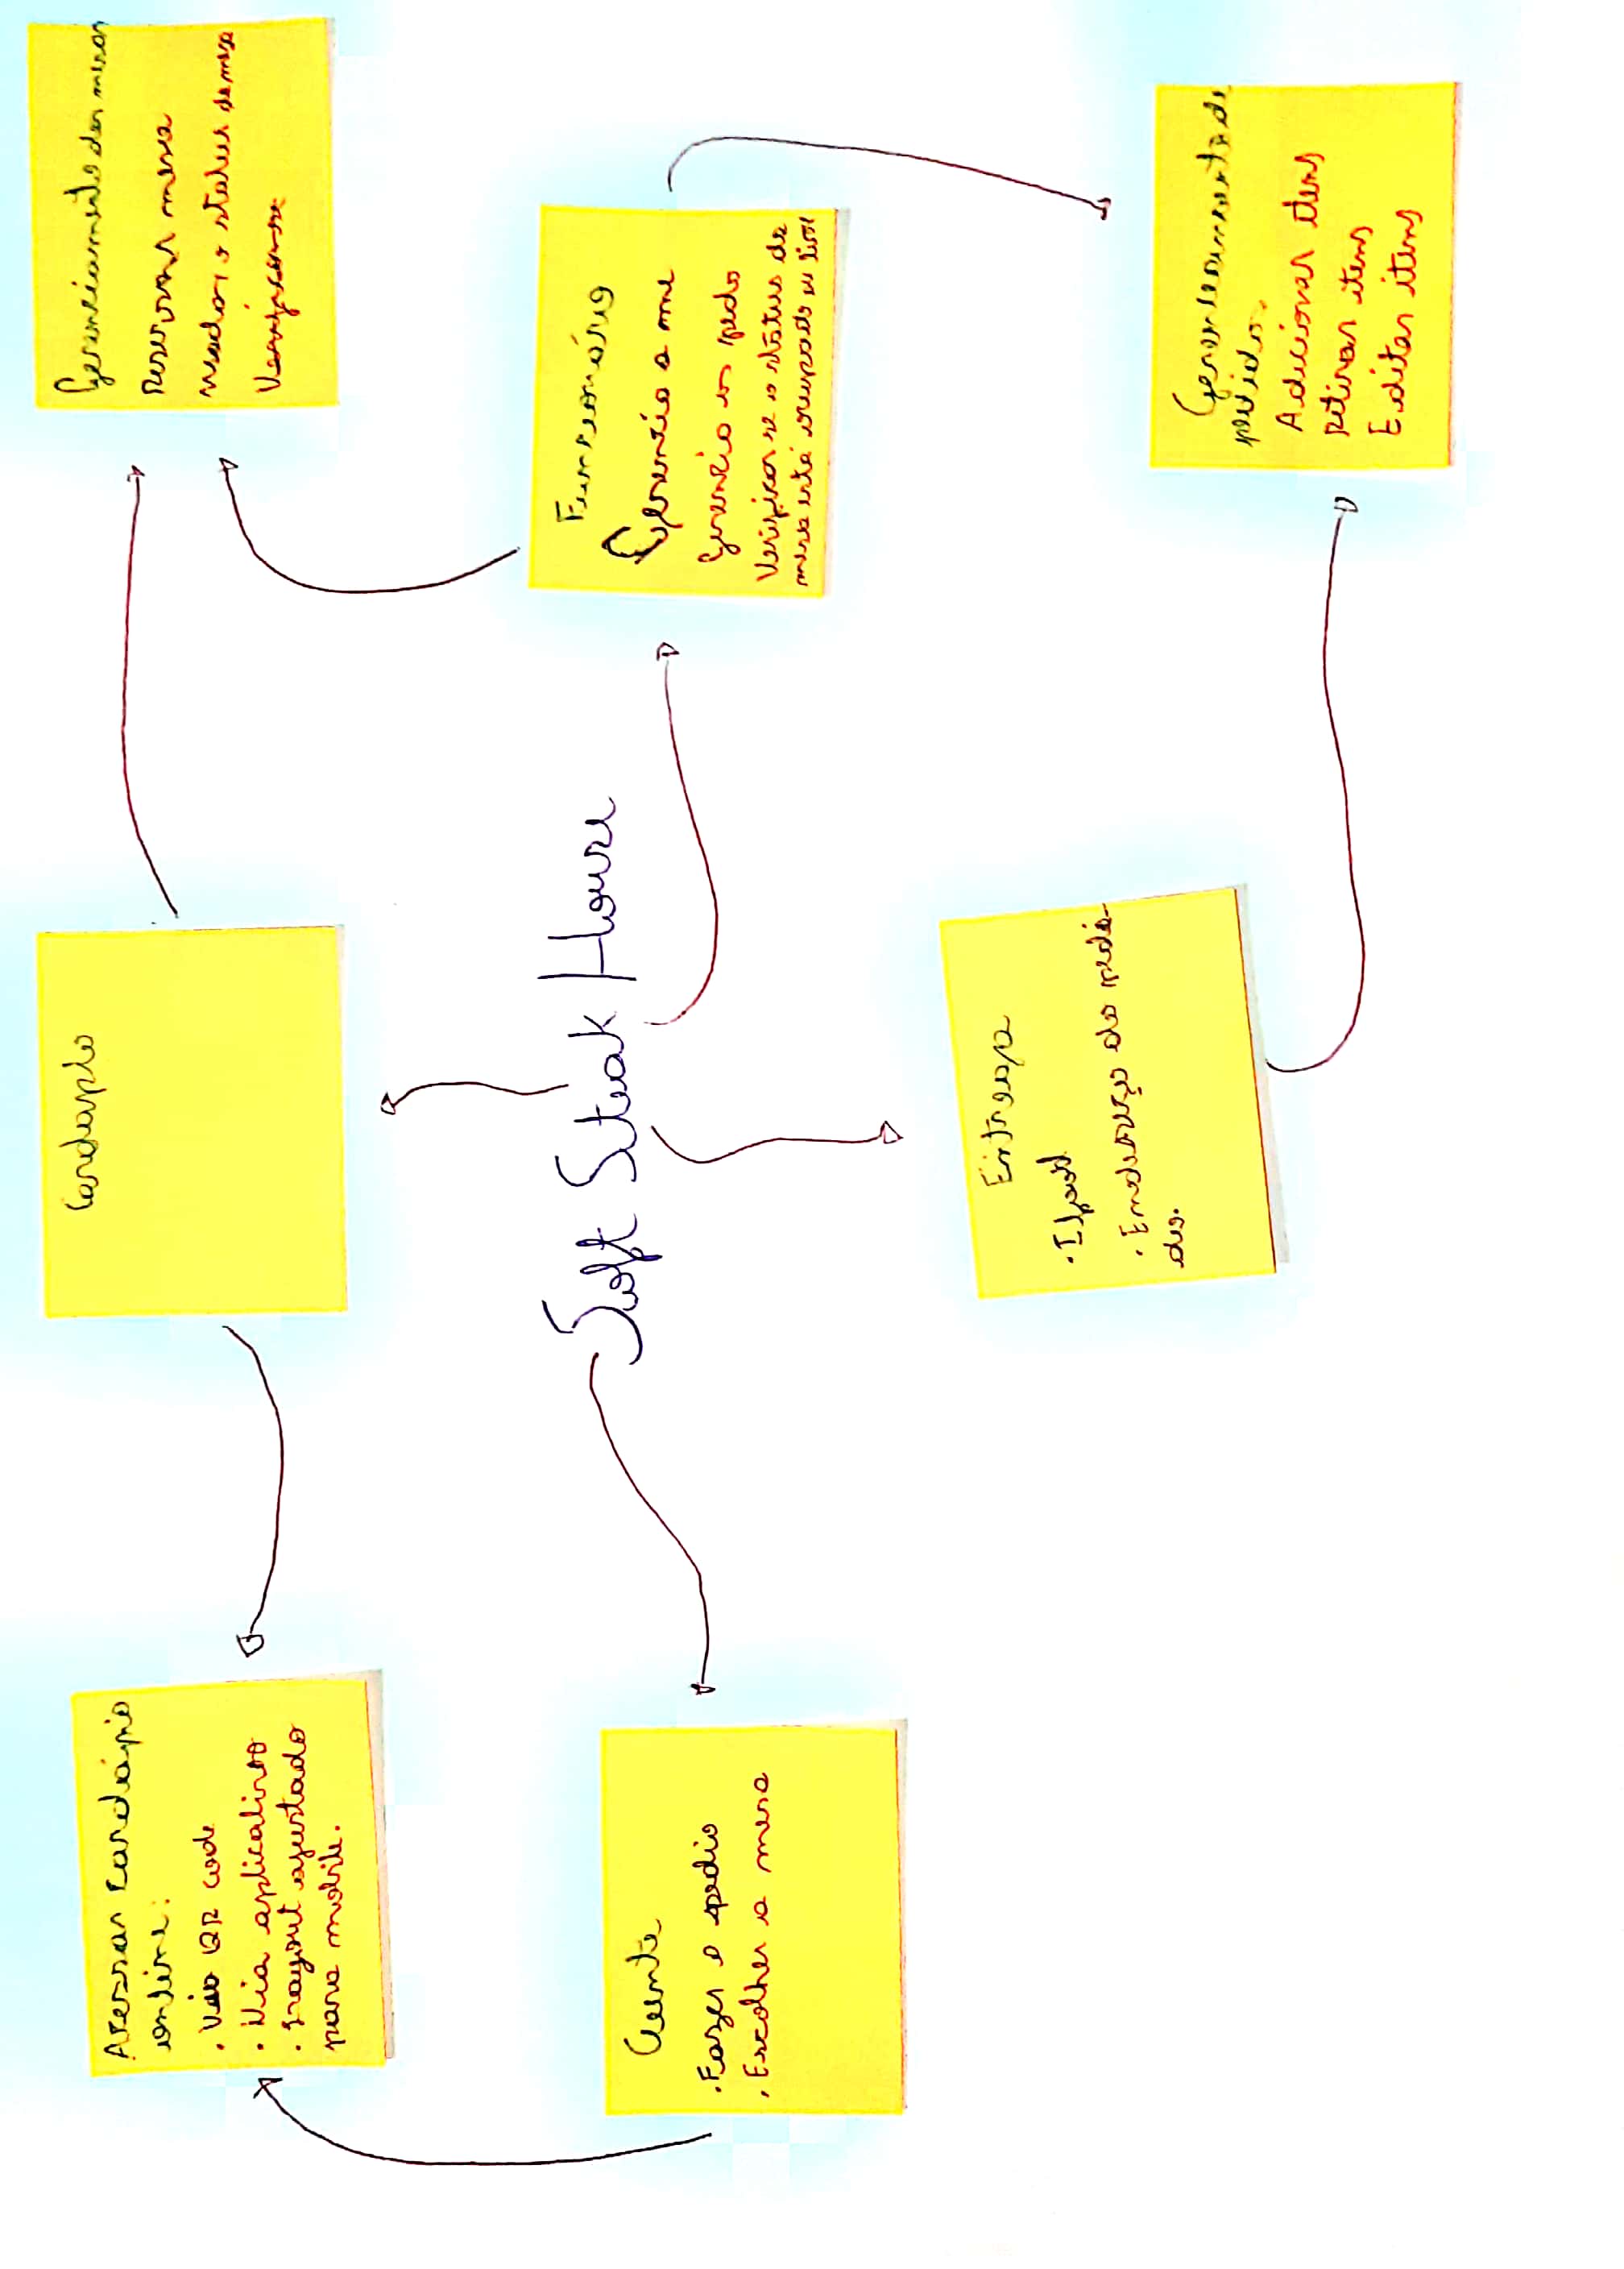 Acessar cardápio
online:
. Via QR code
. Via aplicativo
. Layout ajustado
para mobile.
Cardapio
Gerenciamento das mesas
Reservar mesa
o status da mesa
Soft Steak House
Cliente
. Fazer o pedio
. Escolher a mesa
Funcionário
Gerencia a me
Gerencia os pedo
Verificar se o status da
mesa está ocupado ou livre
Entrega
. Ifood
. Endereço do pedi-
do.
Gerenciamento de
pedidos
Adicionar itens
Retirar itens
Editar itens